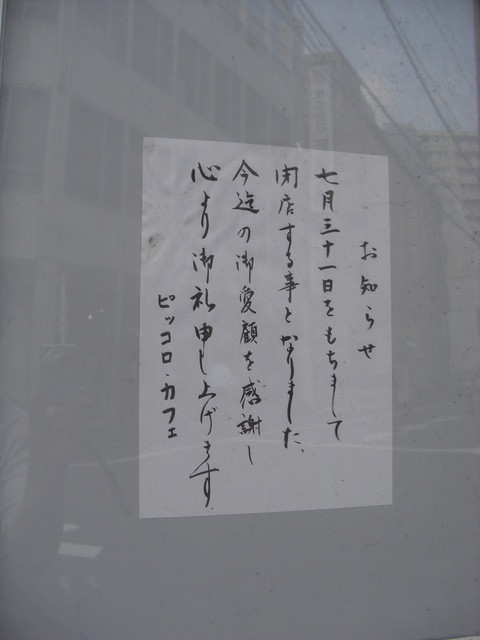 お知らせ
七月三十一日をもちまして
閉店する事となりました、
今迄の御愛顧を感謝し
心より御礼申し上げます
ピッコロ・カフェ